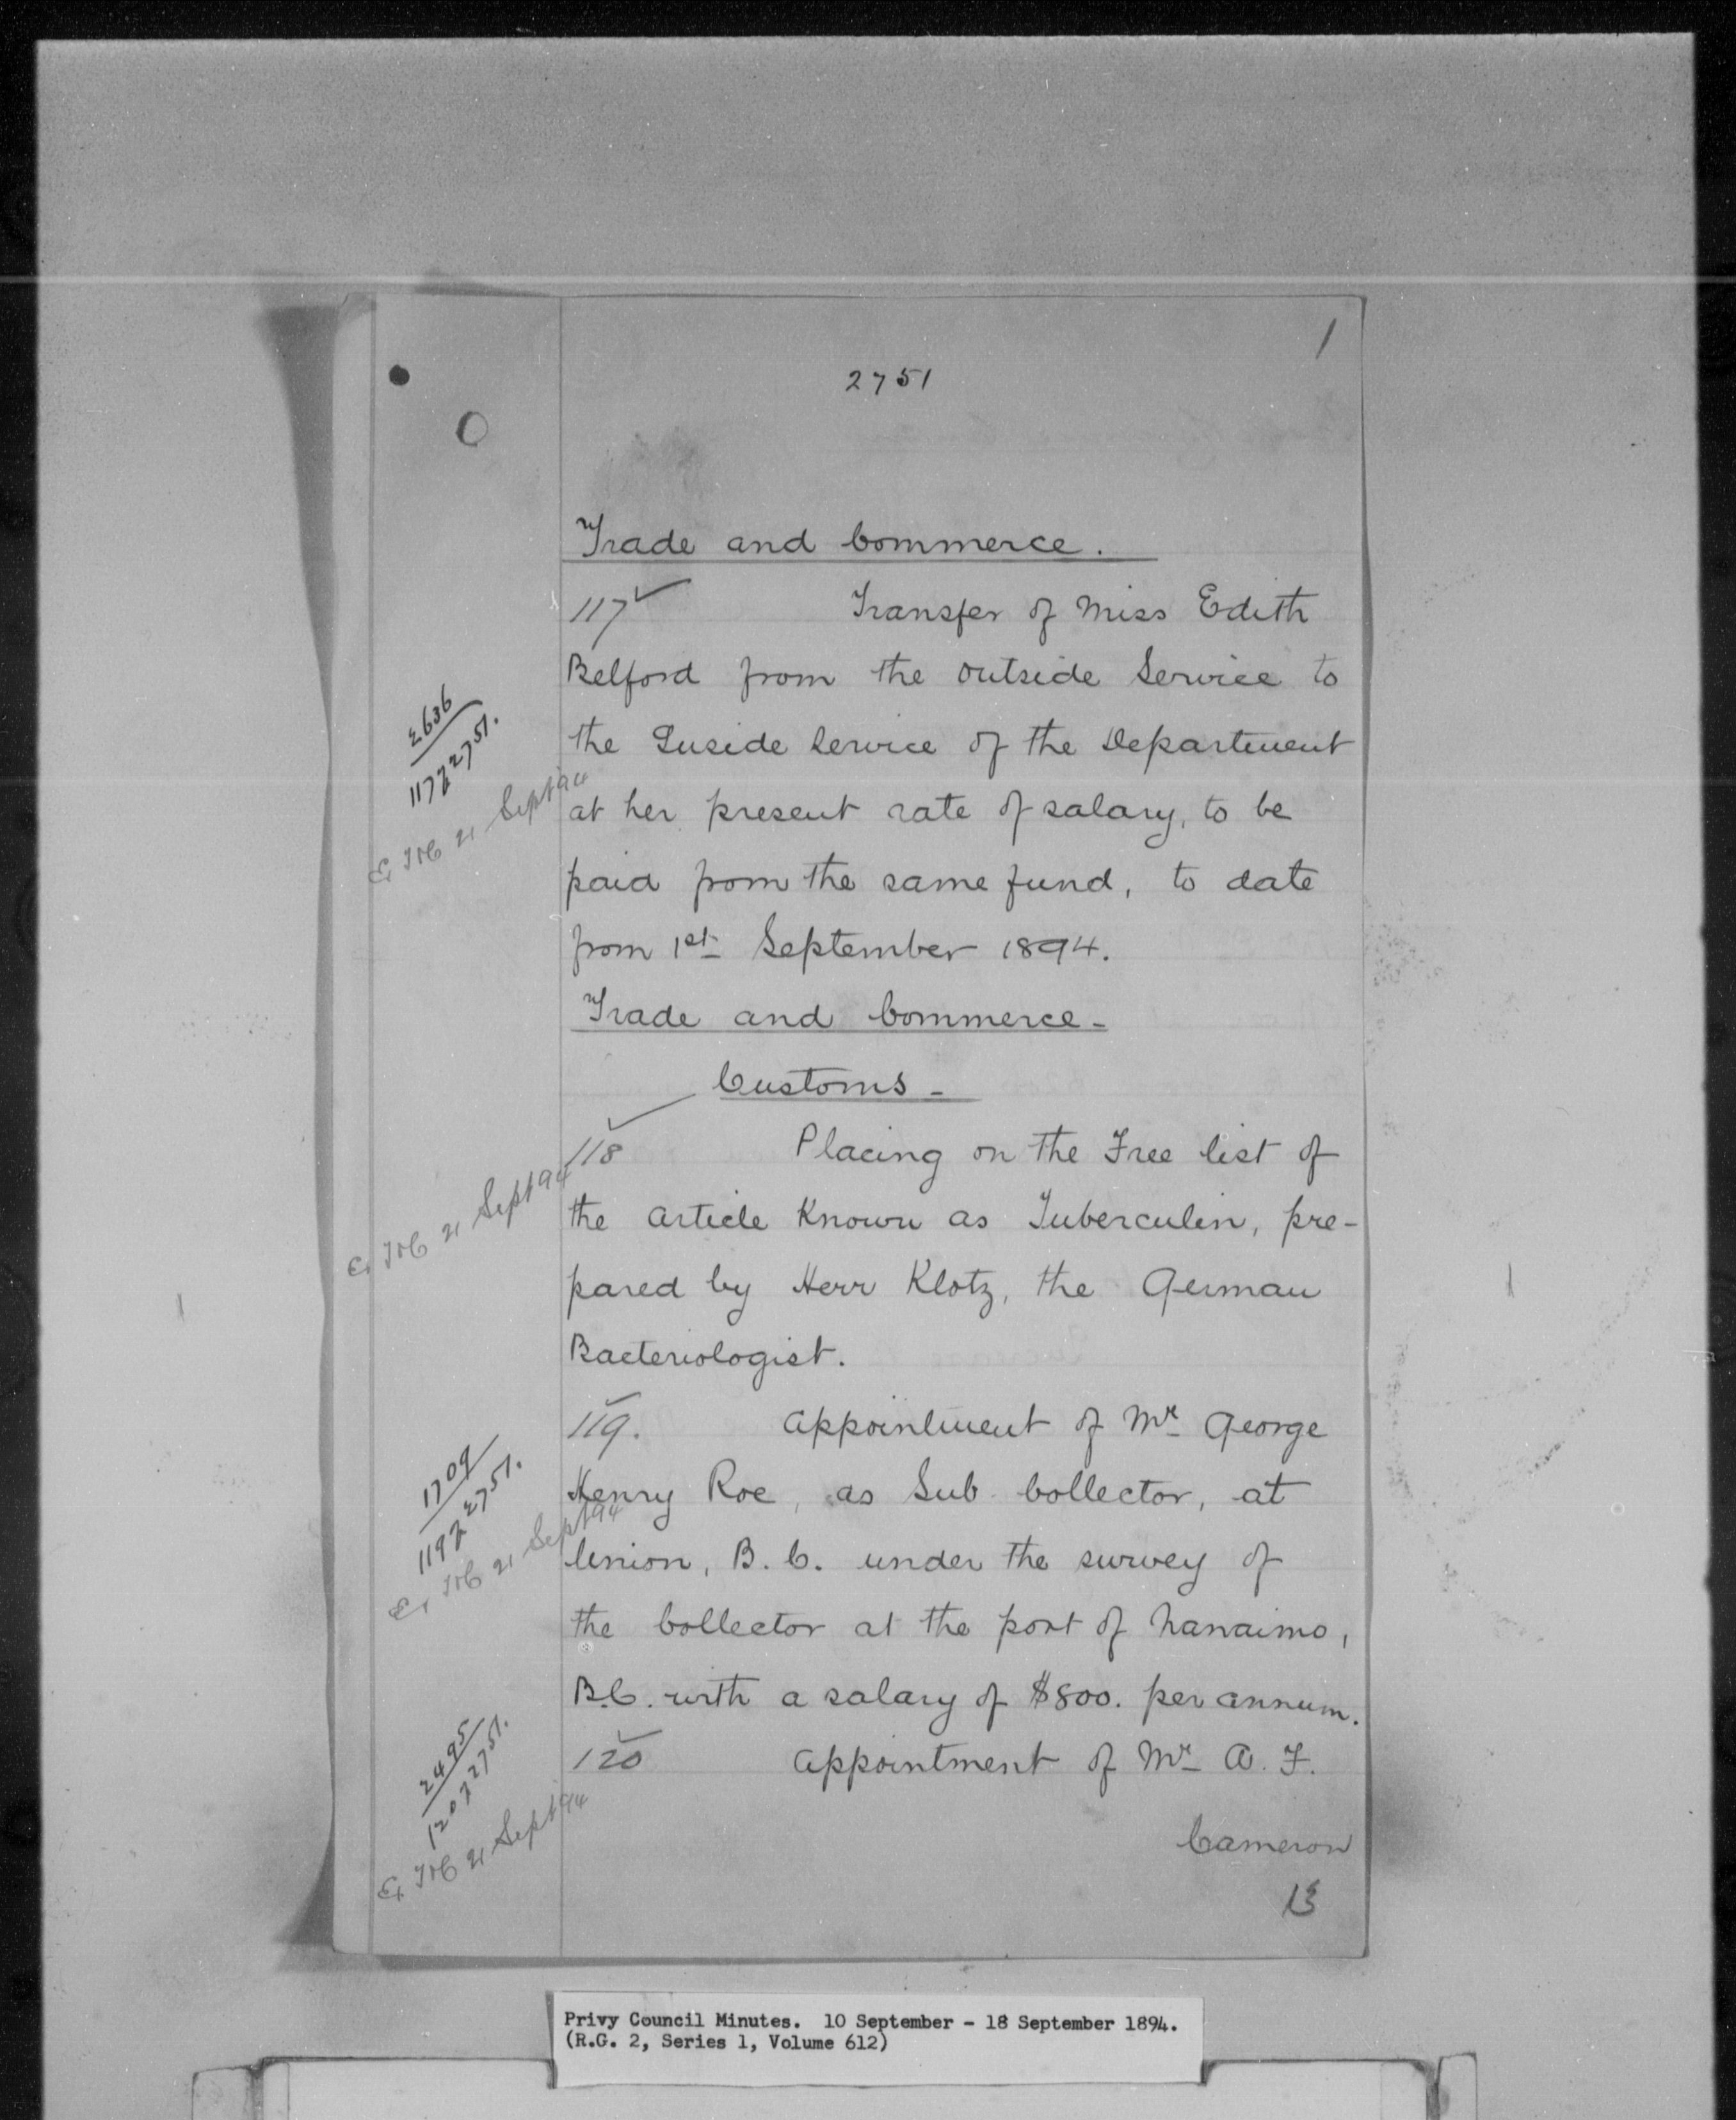 1
2751
Trade and Commerce.
117
Transfer of Miss Edith
Belford from the Outside Service to
the Inside Service of the Department
at her present rate of salary, to be
paid from the same fund, to date
from 1st September 1894.
2636
117 2751.
21 Sept 94
Trade and Commerce -
Customs -
118
Placing on the Free list of
the article Known as Tuberculin, pre-
pared by Herr Klotz, the German
Bacteriologist.
21 Sept 94
119.
Appointment of Mr George
Henry Roe, as Sub Collector, at
Union, B.C. under the survey of
the Collector at the port of Nanaimo,
B.C. with a salary of $800. per annum.
1709
119 2751.
21 Sept 94
120
Appointment of Mr A. F.
Cameron
2495
120 2751.
21 Sept 94
Privy Council Minutes. 10 September - 18 September 1894.
(R.G. 2, Series 1, Volume 612)